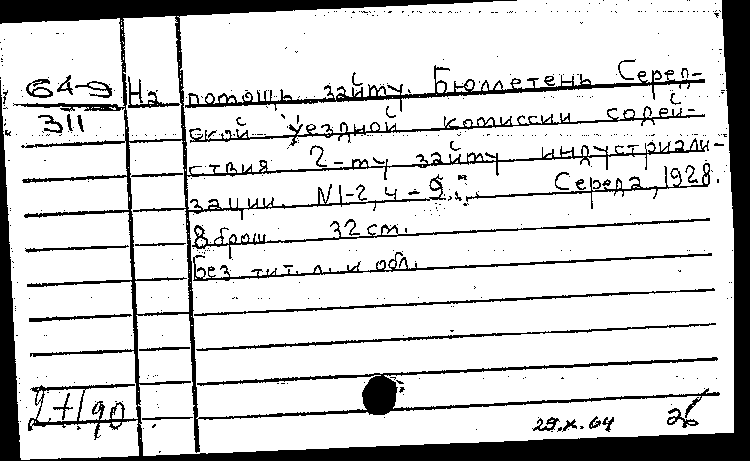 64-9 На помощь займу. Бюллетень Серед-
311 ской уездной комиссии содей-
ствия 2-му займу индустриали-
зации. N1-2, 4-9. Середа, 1928.
8 брош 32 см.
Без тит. л. и обл.
29.X.64